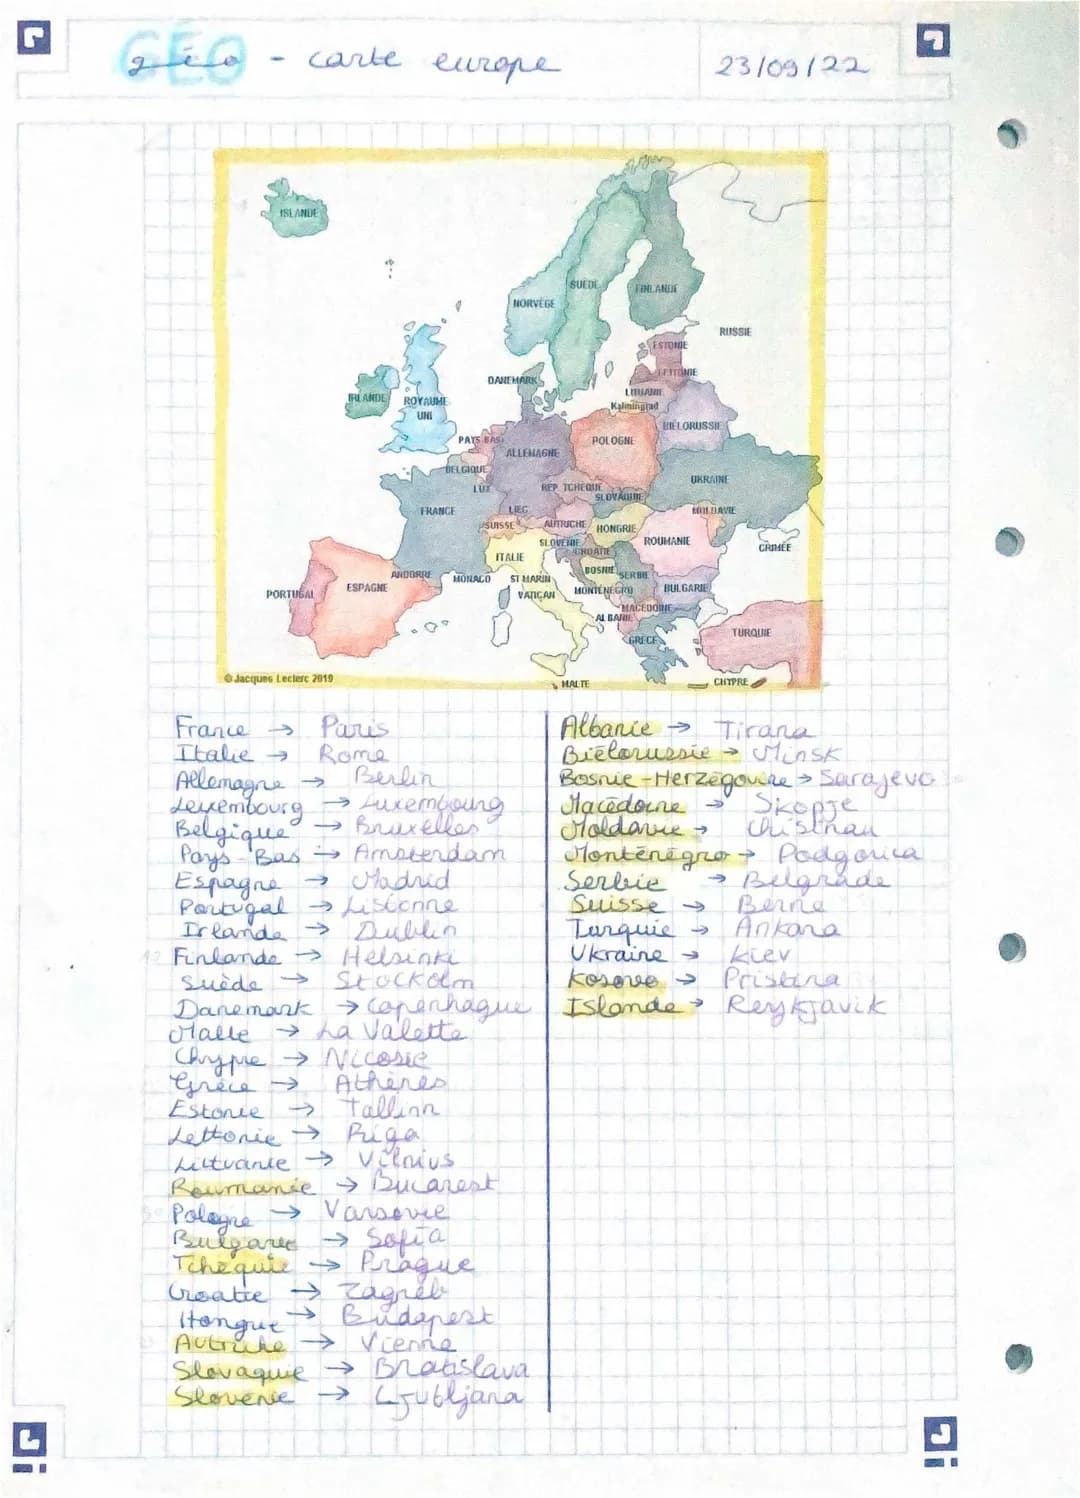 GÉO
géo - carte europe
23/09/22
ISLANDE
SUÈDE
FINLANDE
NORVÈGE
RUSSIE
ESTONIE
LETTONIE
DANEMARK
LITUANIE
IRLANDE
ROYAUME
UNI
Kaliningrad
BIÉLORUSSIE
PAYS-BAS
POLOGNE
ALLEMAGNE
BELGIQUE
UKRAINE
LUX
RÉP. TCHÈQUE
SLOVAQUIE
FRANCE
LIEC
MOLDAVIE
SUISSE
AUTRICHE
HONGRIE
SLOVÉNIE
ROUMANIE
CROATIE
CRIMÉE
ITALIE
BOSNIE
SERBIE
ANDORRE
MONACO
ST MARIN
ESPAGNE
PORTUGAL
VATICAN
MONTÉNÉGRO
BULGARIE
MACÉDOINE
ALBANIE
GRÈCE
TURQUIE
© Jacques Leclerc 2019
MALTE
CHYPRE
France → Paris
Italie → Rome
Allemagne → Berlin
Luxembourg → Luxembourg
Belgique → Bruxelles
Pays-Bas → Amsterdam
Espagne → Madrid
Portugal → Lisbonne
Irlande → Dublin
Finlande → Helsinki
Suède → Stockolm
Danemark → Copenhague
Malte → La Valette
Chypre → Nicosie
Grèce → Athènes
Estonie → Tallinn
Lettonie → Riga
Lituanie → Vilnius
Roumanie → Bucarest
Pologne → Varsovie
Bulgarie → Sofia
Tchéquie → Prague
Croatie → Zagreb
Hongrie → Budapest
Autriche → Vienne
Slovaquie → Bratislava
Slovénie → Ljubljana
Albanie → Tirana
Biélorussie → Minsk
Bosnie-Herzégovine → Sarajevo
Macédoine → Skopje
Moldavie → Chisinau
Monténégro → Podgorica
Serbie → Belgrade
Suisse → Berne
Turquie → Ankara
Ukraine → Kiev
Kosovo → Pristina
Islande → Reykjavik